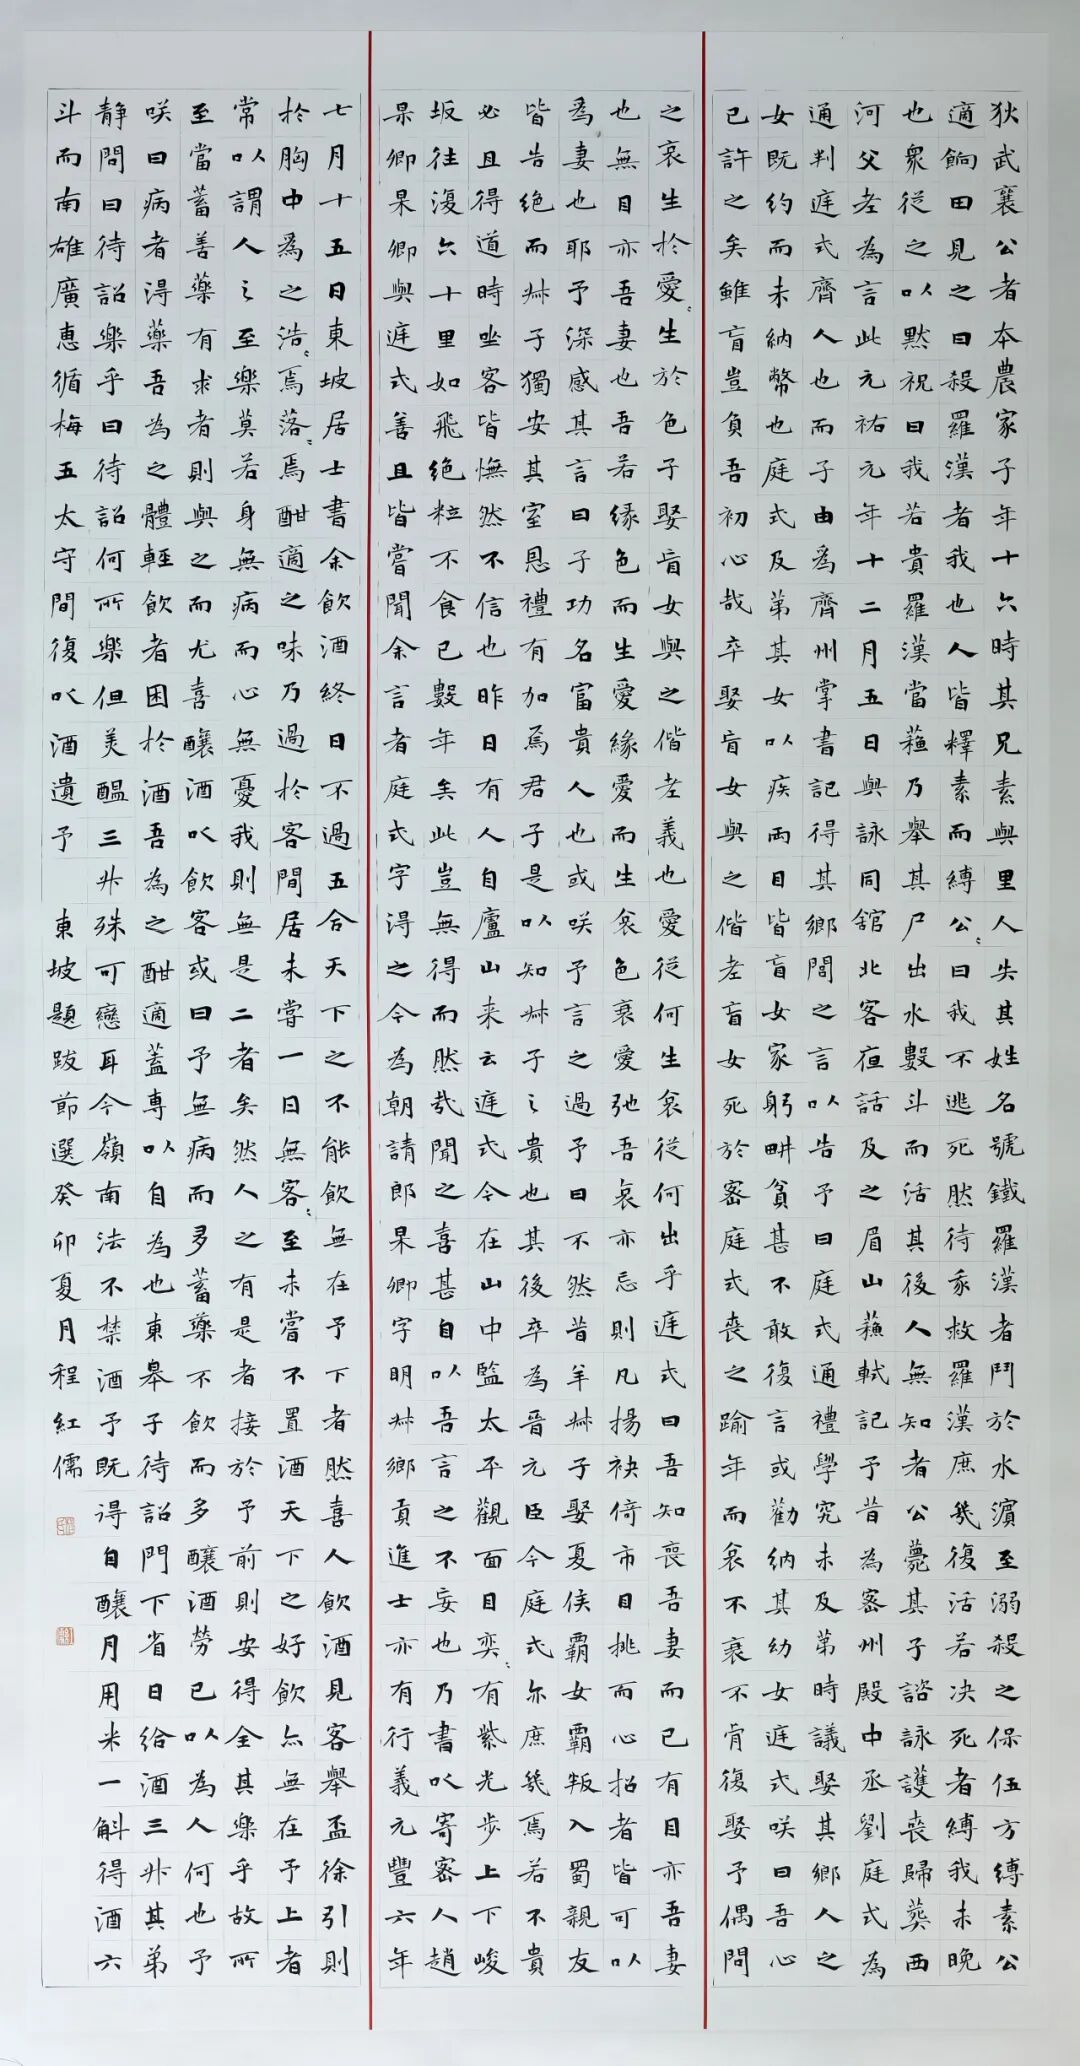 狄武襄公者本農家子年十六時其兄素與里人失其姓名號鐵羅漢者鬥於水濱至溺殺之保伍方縛素公
適餉田見之曰殺羅漢者我也人皆釋素而縛公〻曰我不逃死然待我救羅漢庶幾復活若决死者縛我未晚
也衆從之以默祝曰我若貴羅漢當蘓乃舉其尸出水數斗而活其後人無知者公薨其子諮詠護喪歸葬西
河父老為言此元祐元年十二月五日與詠同舘北客夜話及之眉山蘓軾記予昔為密州殿中丞劉庭式為
通判庭式齊人也而子由為齊州掌書記得其鄉閭之言以告予曰庭式通禮學究未及第時議娶其鄉人之
女既約而未納幣也庭式及第其女以疾兩目皆盲女家躬畊貧甚不敢復言或勸納其幼女庭式咲曰吾心
已許之矣雖盲豈負吾初心哉卒娶盲女與之偕老盲女死於密庭式喪之踰年而哀不衰不肯復娶予偶問
之哀生於愛〻生於色子娶盲女與之偕老義也愛從何生哀從何出乎庭式曰吾知喪吾妻而已有目亦吾妻
也無目亦吾妻也吾若緣色而生愛緣愛而生哀色衰愛弛吾哀亦忘則凡揚袂倚市目挑而心招者皆可以
為妻也耶予深感其言曰子功名富貴人也或咲予言之過予曰不然昔羊叔子娶夏侯霸女霸叛入蜀親友
皆告絕而叔子獨安其室恩禮有加焉君子是以知叔子之貴也其後卒為晉元臣今庭式亦庶幾焉若不貴
必且得道時坐客皆憮然不信也昨日有人自廬山来云庭式今在山中監太平觀面目奕〻有紫光步上下峻
坂往復六十里如飛絕粒不食已數年矣此豈無得而然哉聞之喜甚自以吾言之不妄也乃書以寄密人趙
杲卿杲卿與庭式善且皆嘗聞余言者庭式字得之今為朝請郎杲卿字明叔鄉貢進士亦有行義元豐六年
七月十五日東坡居士書余飲酒終日不過五合天下之不能飲無在予下者然喜人飲酒見客舉盃徐引則
於胸中為之浩〻焉落〻焉酣適之味乃過於客間居未嘗一日無客〻至未嘗不置酒天下之好飲亦無在予上者
常以謂人之至樂莫若身無病而心無憂我則無是二者矣然人之有是者接於予前則安得全其樂乎故所
至當蓄善藥有求者則與之而尤喜釀酒以飲客或曰予無病而多蓄藥不飲而多釀酒勞己以為人何也予
咲曰病者得藥吾為之體輕飲者困於酒吾為之酣適蓋專以自為也東皋子待詔門下省日給酒三升其弟
靜問曰待詔樂乎曰待詔何所樂但美醞三升殊可戀耳今嶺南法不禁酒予既得自釀月用米一斛得酒六
斗而南雄廣惠循梅五太守間復以酒遺予 東坡題跋節選癸卯夏月程紅儒